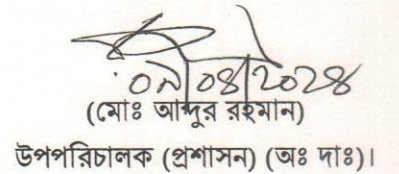 ০৯/০৪/২০২৪
(মোঃ আব্দুর রহমান)
উপপরিচালক (প্রশাসন) (অঃ দাঃ)।